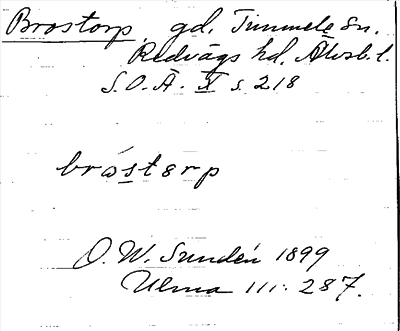 Brostorp, gd, Timmele sn.
Redvägs hd. Älvsb. l.
S.O.Ä. X s. 218
bråstɘrp
O. W. Sundén 1899
Ulma 111: 287.